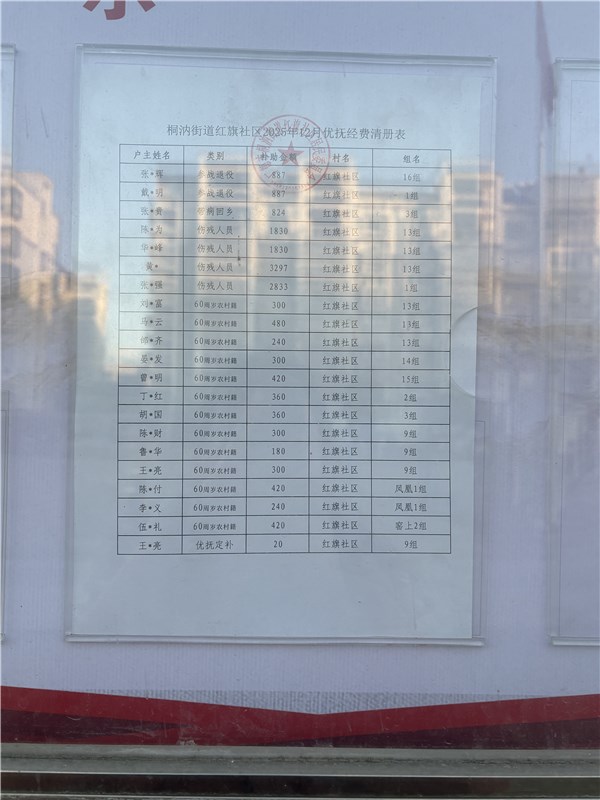 桐汭街道红旗社区2025年12月优抚经费清册表
户主姓名 类别 补助金额 村名 组名
张*辉 参战退役 887 红旗社区 16组
戴*明 参战退役 887 红旗社区 1组
张*贵 带病回乡 824 红旗社区 3组
陈*为 伤残人员 1830 红旗社区 13组
华*峰 伤残人员 1830 红旗社区 13组
黄* 伤残人员 3297 红旗社区 13组
张*强 伤残人员 2833 红旗社区 1组
刘*富 60周岁农村籍 300 红旗社区 13组
*云 60周岁农村籍 480 红旗社区 13组
*齐 60周岁农村籍 240 红旗社区 13组
晏*发 60周岁农村籍 300 红旗社区 14组
曾*明 60周岁农村籍 420 红旗社区 15组
丁*红 60周岁农村籍 360 红旗社区 2组
胡*国 60周岁农村籍 360 红旗社区 3组
陈*财 60周岁农村籍 300 红旗社区 9组
鲁*华 60周岁农村籍 180 红旗社区 9组
王*亮 60周岁农村籍 300 红旗社区 9组
陈*付 60周岁农村籍 420 红旗社区 凤凰1组
李*义 60周岁农村籍 240 红旗社区 凤凰1组
伍*礼 60周岁农村籍 420 红旗社区 窑上2组
王*亮 优抚定补 20 红旗社区 9组